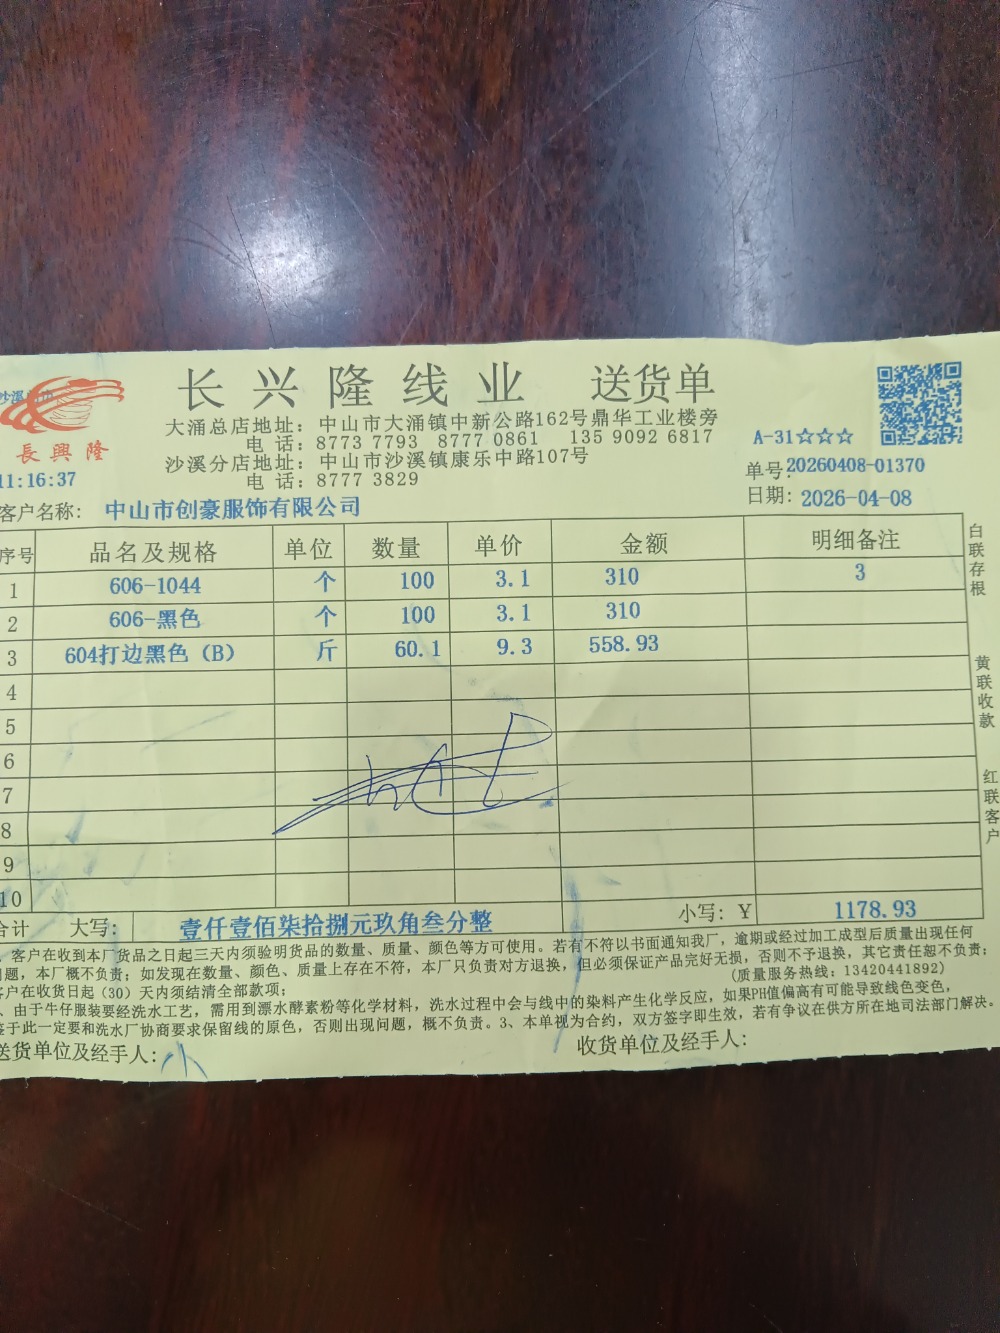 長興隆
长兴隆线业 送货单
大涌总店地址：中山市大涌镇中新公路162号鼎华工业楼旁
电 话：8773 7793 8777 0861 135 9092 6817
沙溪分店地址：中山市沙溪镇康乐中路107号
电 话：8777 3829
A-31☆☆☆
11:16:37
单号：20260408-01370
日期：2026-04-08
客户名称：中山市创豪服饰有限公司
序号 品名及规格 单位 数量 单价 金额 明细备注
1 606-1044 个 100 3.1 310 3
2 606-黑色 个 100 3.1 310
3 604打边黑色（B） 斤 60.1 9.3 558.93
4
5
6
7
8
9
10
合计 大写： 壹仟壹佰柒拾捌元玖角叁分整 小写：￥ 1178.93
客户在收到本厂货品之日起三天内须验明货品的数量、质量、颜色等方可使用。若有不符以书面通知我厂，逾期或经过加工成型后质量出现任何
问题，本厂概不负责；如发现在数量、颜色、质量上存在不符，本厂只负责对方退换，但必须保证产品完好无损，否则不予退换，其它责任恕不负责；
客户在收货日起（30）天内须结清全部款项； （质量服务热线：13420441892）
、由于牛仔服装要经洗水工艺，需用到漂水酵素粉等化学材料，洗水过程中会与线中的染料产生化学反应，如果PH值偏高有可能导致线色变色，
鉴于此一定要和洗水厂协商要求保留线的原色，否则出现问题，概不负责。3、本单视为合约，双方签字即生效，若有争议在供方所在地司法部门解决。
送货单位及经手人：小 收货单位及经手人：
白联存根
黄联收款
红联客户